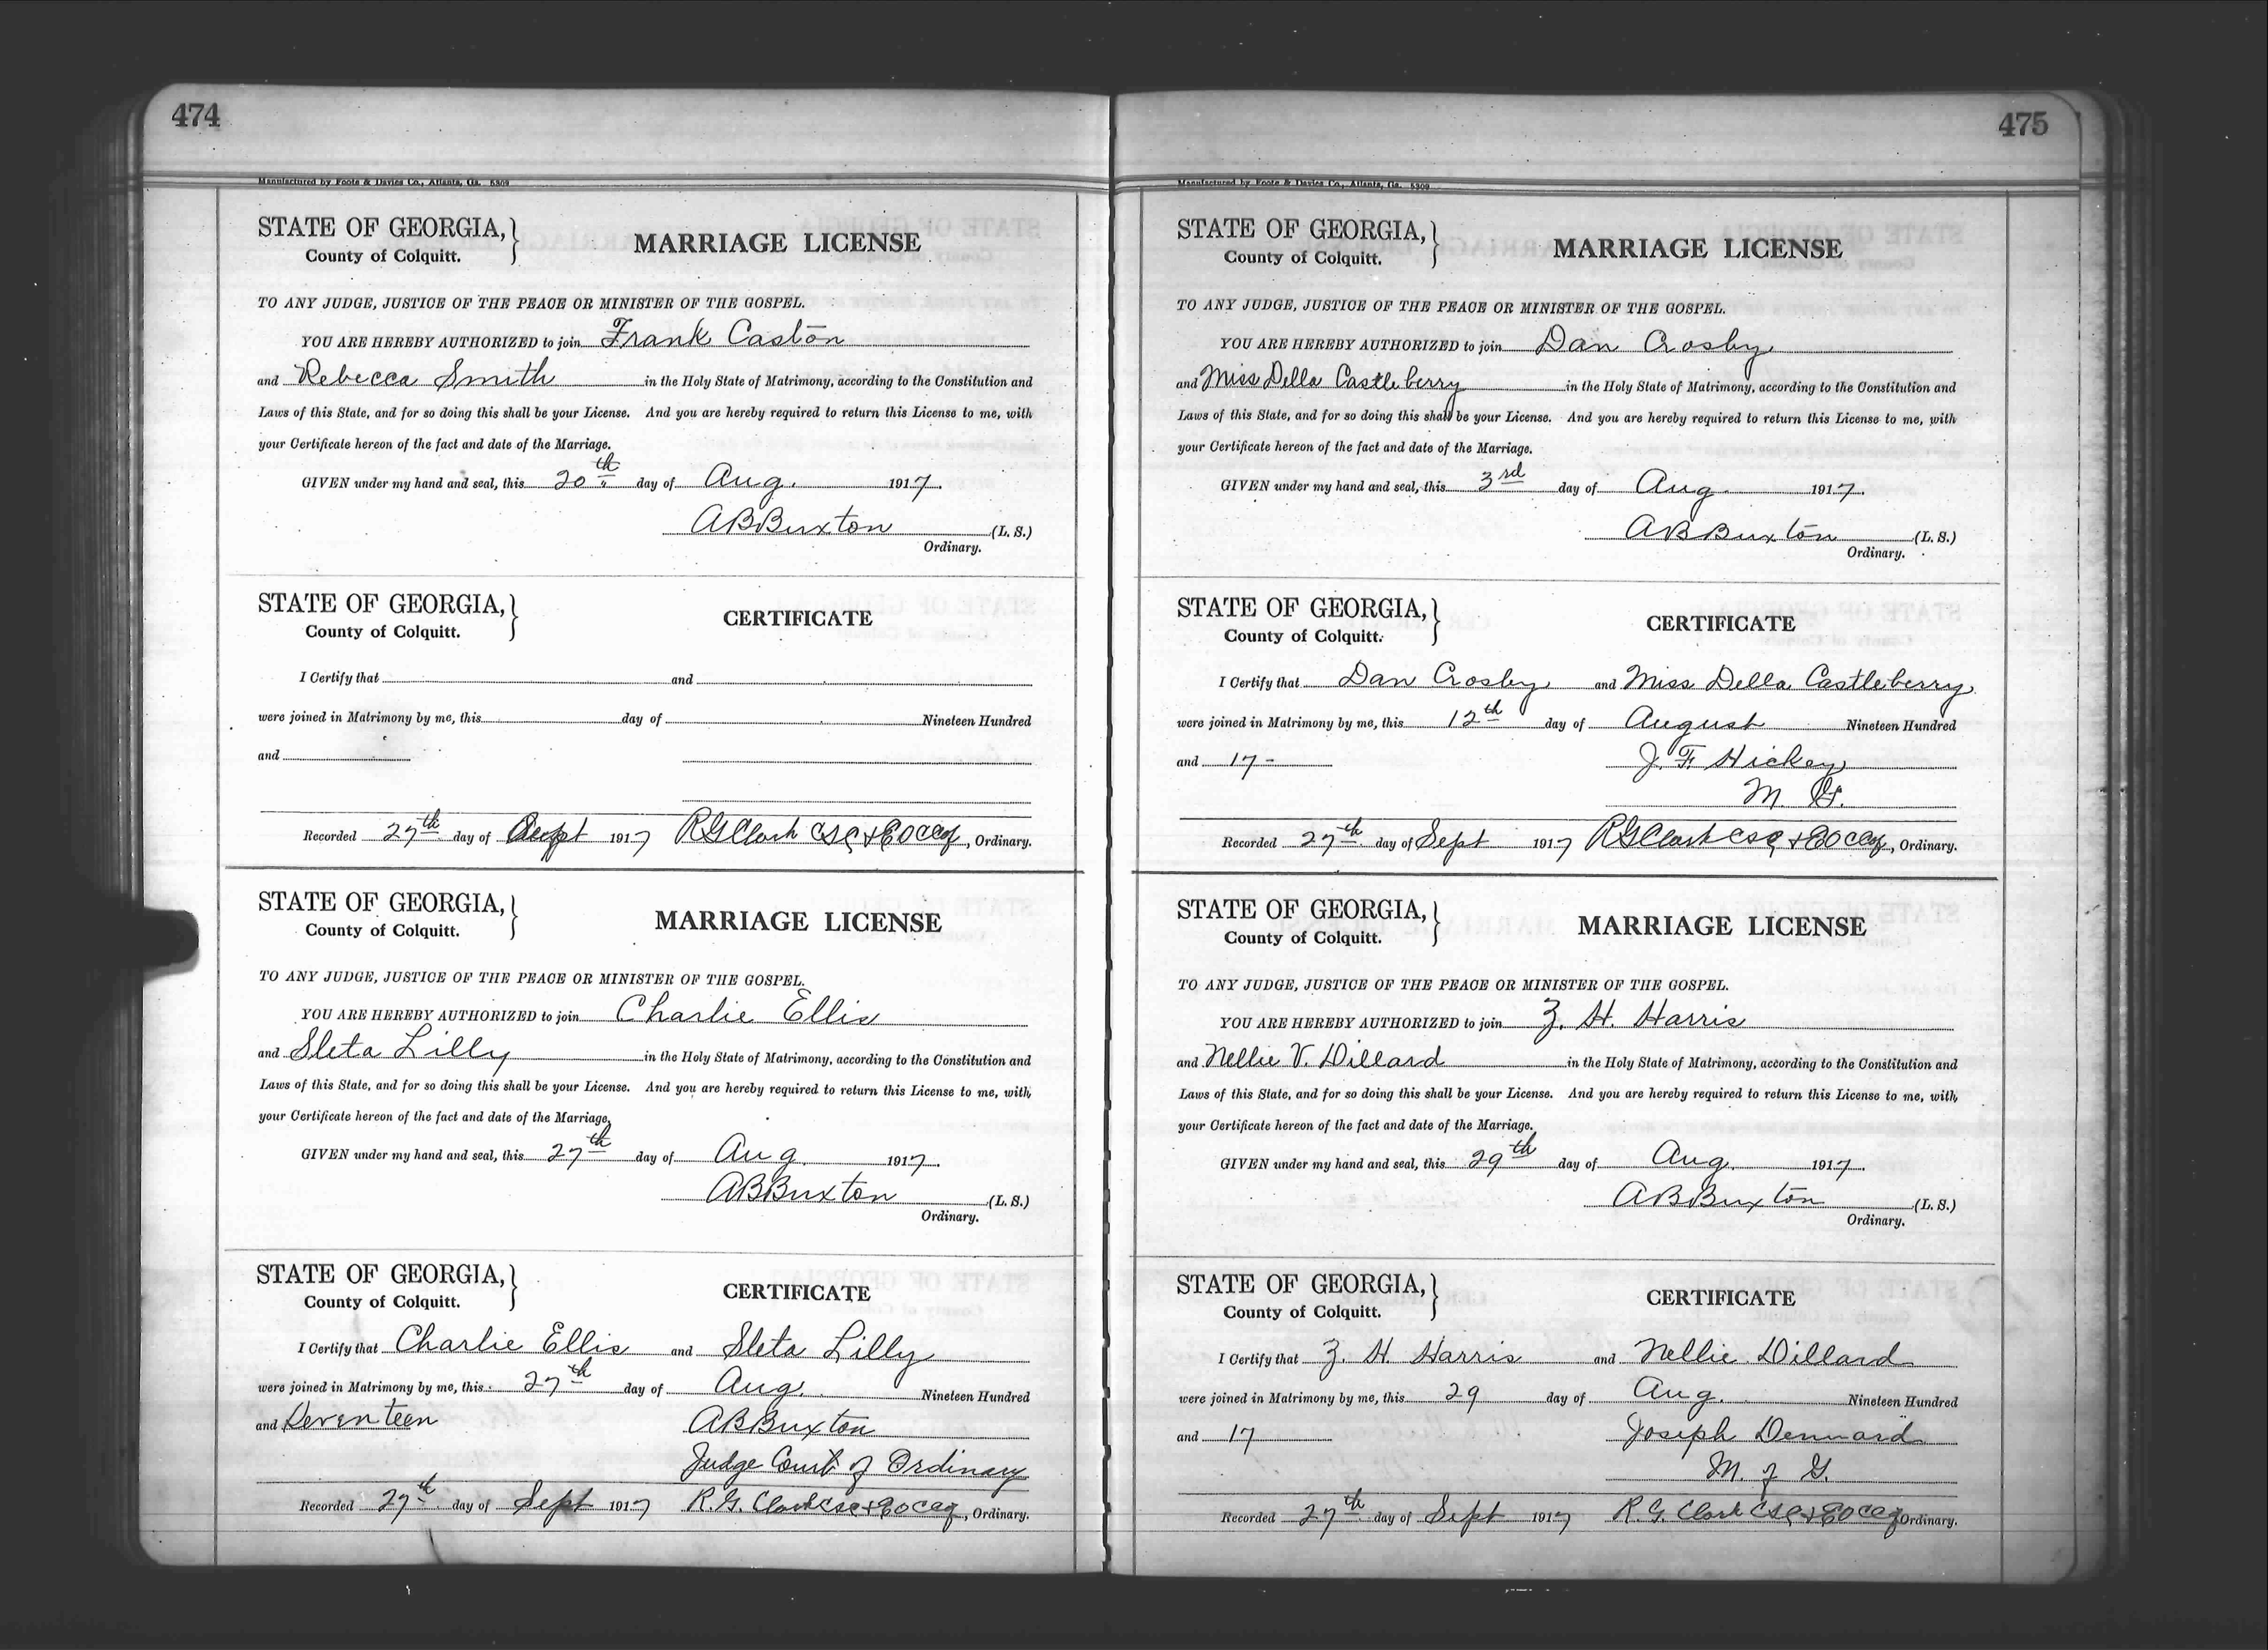 474
Manufactured by Foote & Davies Co., Atlanta, Ga. 5309
STATE OF GEORGIA,
County of Colquitt.
MARRIAGE LICENSE
TO ANY JUDGE, JUSTICE OF THE PEACE OR MINISTER OF THE GOSPEL.
YOU ARE HEREBY AUTHORIZED to join Frank Caston
and Rebecca Smith in the Holy State of Matrimony, according to the Constitution and
Laws of this State, and for so doing this shall be your License. And you are hereby required to return this License to me, with
your Certificate hereon of the fact and date of the Marriage.
GIVEN under my hand and seal, this 20th day of Aug. 1917.
A B Buxton (L. S.)
Ordinary.
STATE OF GEORGIA,
County of Colquitt.
CERTIFICATE
I Certify that and
were joined in Matrimony by me, this day of Nineteen Hundred
and
Recorded 27th day of Sept 1917 R G Clark CSC & EO CCOf, Ordinary.
STATE OF GEORGIA,
County of Colquitt.
MARRIAGE LICENSE
TO ANY JUDGE, JUSTICE OF THE PEACE OR MINISTER OF THE GOSPEL.
YOU ARE HEREBY AUTHORIZED to join Charlie Ellis
and Sleta Lilly in the Holy State of Matrimony, according to the Constitution and
Laws of this State, and for so doing this shall be your License. And you are hereby required to return this License to me, with
your Certificate hereon of the fact and date of the Marriage.
GIVEN under my hand and seal, this 27th day of Aug 1917.
A B Buxton (L. S.)
Ordinary.
STATE OF GEORGIA,
County of Colquitt.
CERTIFICATE
I Certify that Charlie Ellis and Sleta Lilly
were joined in Matrimony by me, this 27th day of Aug. Nineteen Hundred
and Seventeen A B Buxton
Judge Court of Ordinary
Recorded 27th day of Sept 1917 R. G. Clark CSC &, Ordinary.
475
Manufactured by Foote & Davies Co., Atlanta, Ga. 5309
STATE OF GEORGIA,
County of Colquitt.
MARRIAGE LICENSE
TO ANY JUDGE, JUSTICE OF THE PEACE OR MINISTER OF THE GOSPEL.
YOU ARE HEREBY AUTHORIZED to join Dan Crosby
and Miss Della Castleberry in the Holy State of Matrimony, according to the Constitution and
Laws of this State, and for so doing this shall be your License. And you are hereby required to return this License to me, with
your Certificate hereon of the fact and date of the Marriage.
GIVEN under my hand and seal, this 3rd day of Aug 1917.
A B Buxton (L. S.)
Ordinary.
STATE OF GEORGIA,
County of Colquitt.
CERTIFICATE
I Certify that Dan Crosby and Miss Della Castleberry
were joined in Matrimony by me, this 12th day of August Nineteen Hundred
and 17- J. F. Hickey
M. G.
Recorded 27th day of Sept 1917 R G Clark CSC &, Ordinary.
STATE OF GEORGIA,
County of Colquitt.
MARRIAGE LICENSE
TO ANY JUDGE, JUSTICE OF THE PEACE OR MINISTER OF THE GOSPEL.
YOU ARE HEREBY AUTHORIZED to join Z. H. Harris
and Nellie V. Dillard in the Holy State of Matrimony, according to the Constitution and
Laws of this State, and for so doing this shall be your License. And you are hereby required to return this License to me, with
your Certificate hereon of the fact and date of the Marriage.
GIVEN under my hand and seal, this 29th day of Aug. 1917.
A B Buxton (L. S.)
Ordinary.
STATE OF GEORGIA,
County of Colquitt.
CERTIFICATE
I Certify that Z. H. Harris and Nellie Dillard
were joined in Matrimony by me, this 29 day of Aug. Nineteen Hundred
and 17 Joseph Dennard
M. of G.
Recorded 27th day of Sept 1917 R. G. Clark CSC & Ordinary.